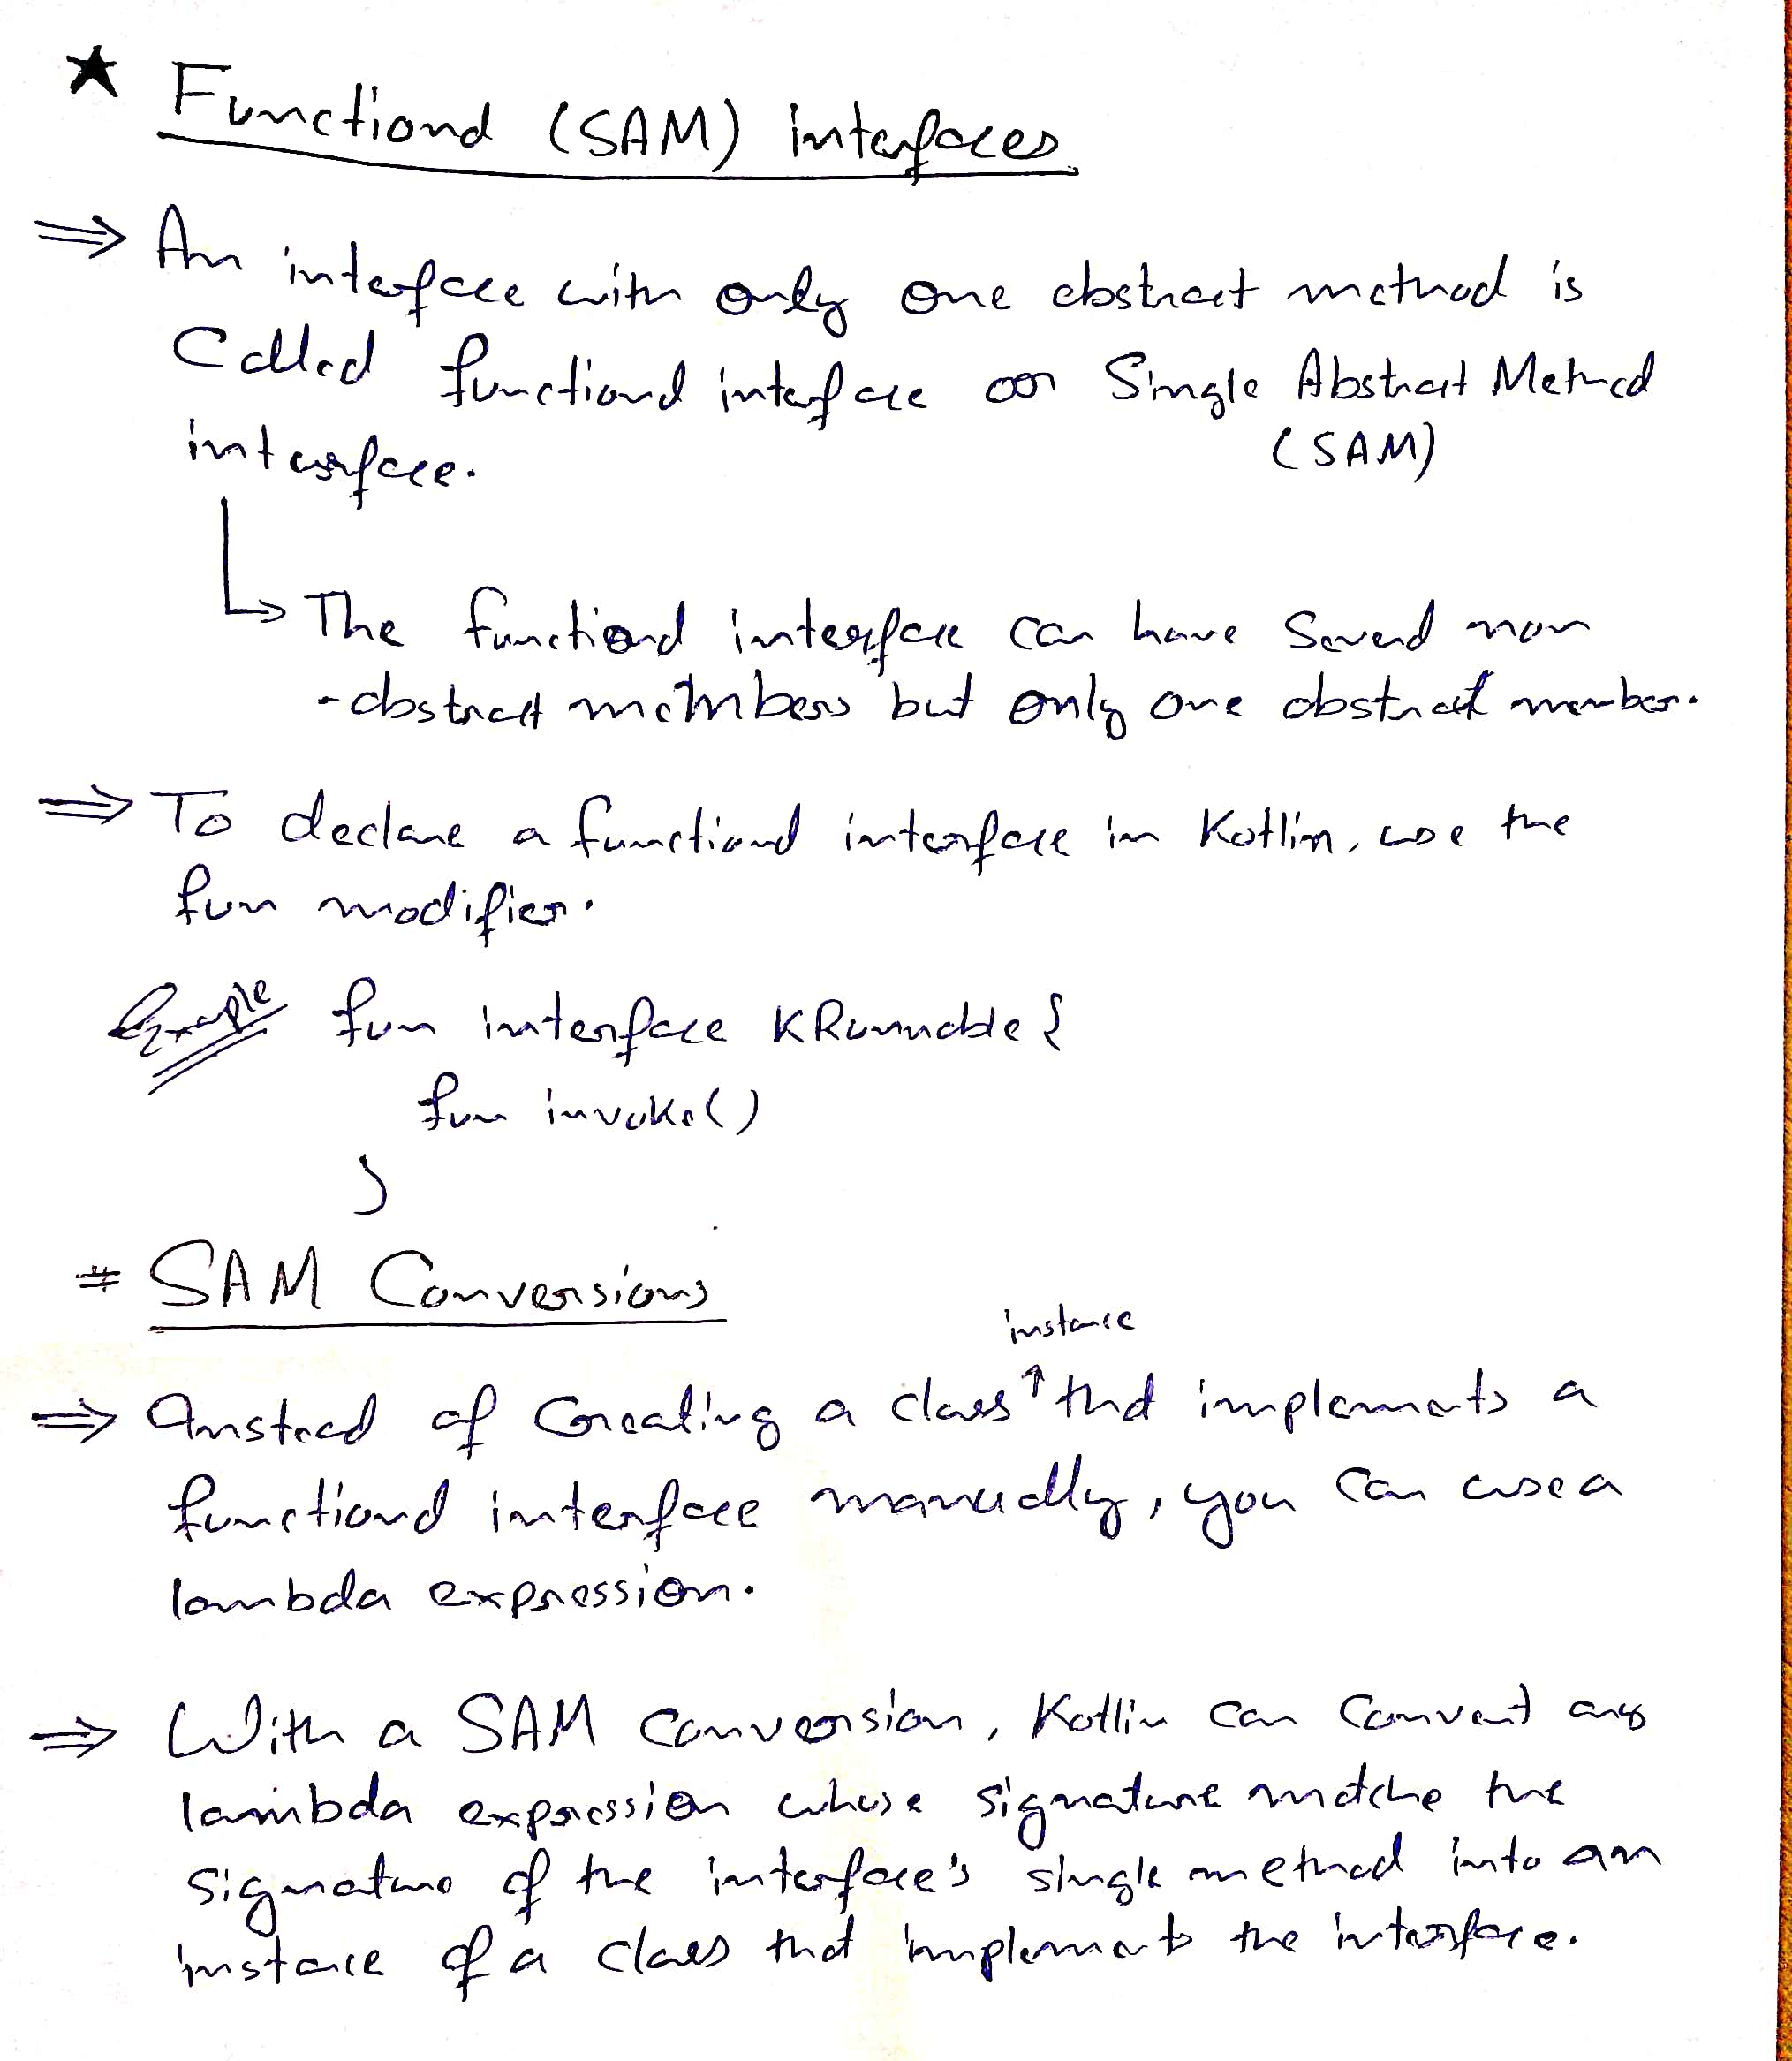 ★ Functional (SAM) interfaces
⇒ An interface with only one abstract method is
Called functional interface or Single Abstract Method
(SAM)
interface.
↳ The functional interface can have Several non
-abstract members but only one abstract member.
⇒ To declare a functional interface in Kotlin, use the
fun modifier.
Example fun interface KRunnable {
fun invoke()
}
# SAM Conversions
instance
⇒ Instead of Creating a class ↑ that implements a
functional interface manually, you can use a
lambda expression.
⇒ With a SAM conversion, Kotlin can Convert any
lambda expression whose signature matche the
signature of the interface's single method into an
instance of a class that implements the interface.